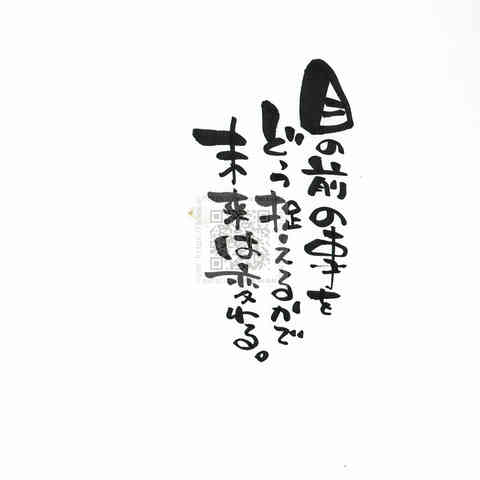 目の前の事を
どう捉えるかで
未来は変わる。